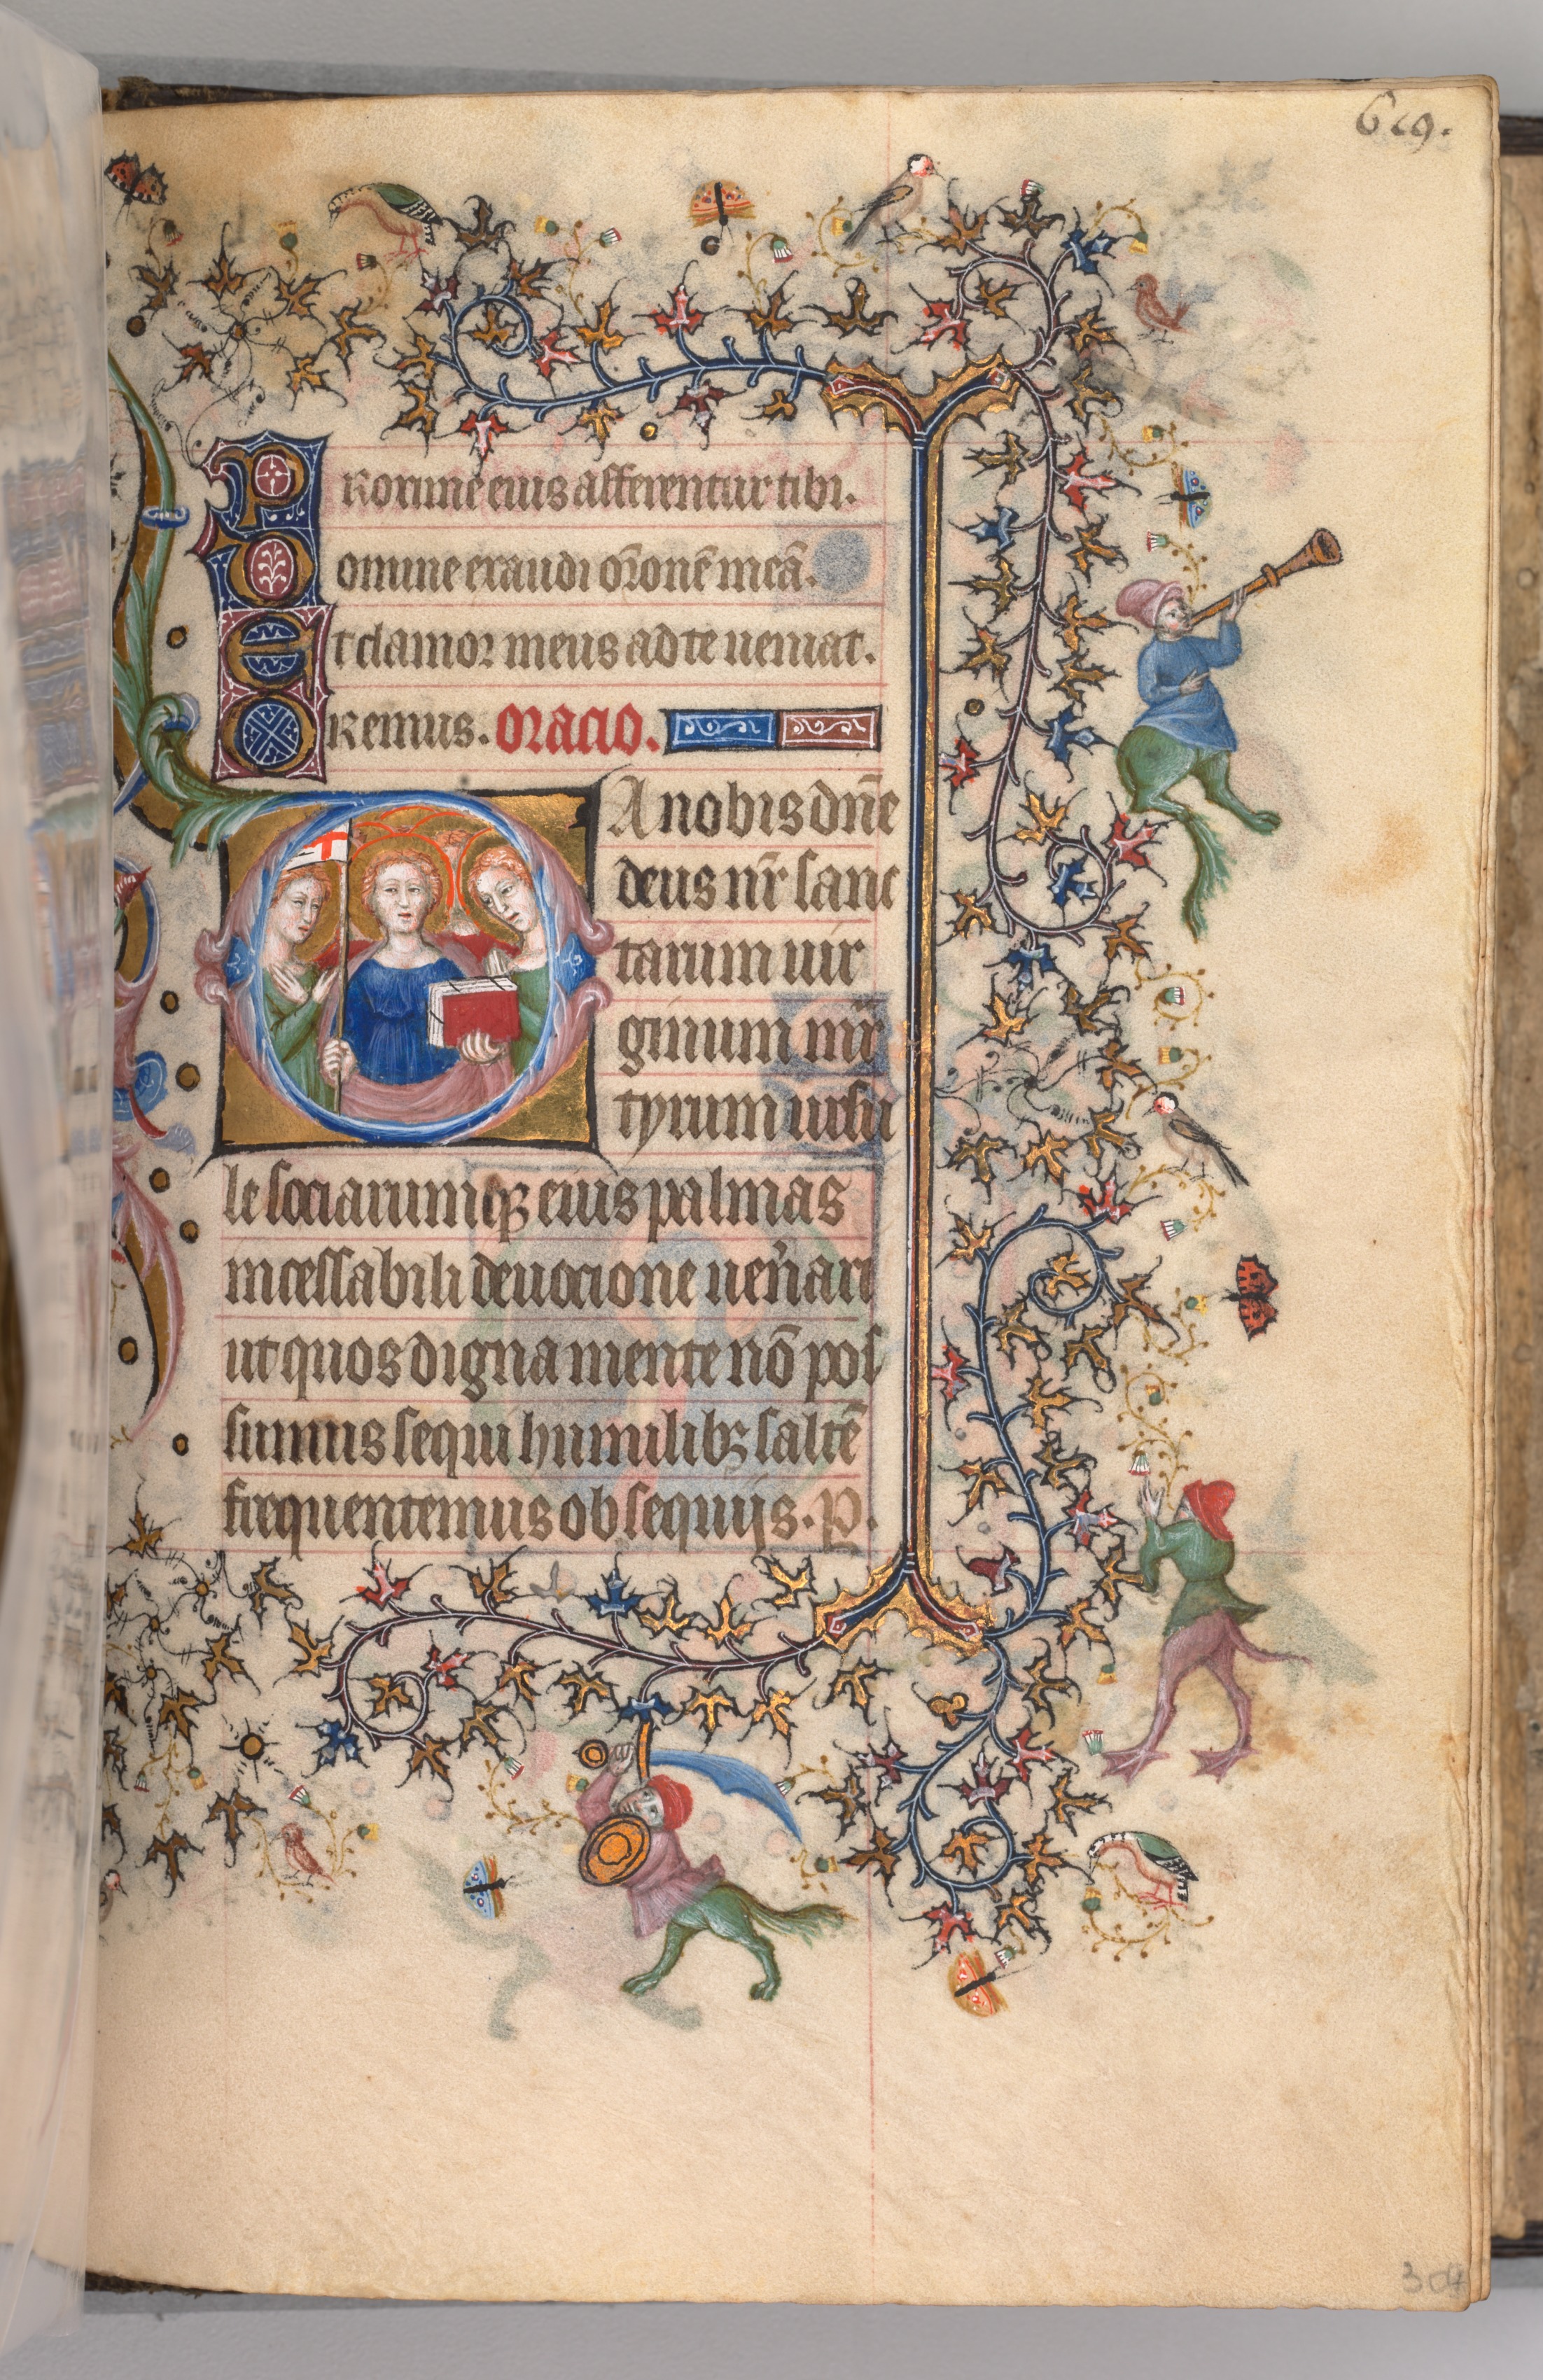 619.
Proxime eius afferentur tibi.
Domine exaudi or̃onẽ meã.
Et clamor meus ad te ueniat.
Oremus. Oracio.
DA nobis dñe
deus nr̃ sanc
tarum uir
ginum mr̃
tyrum ursu
le sociarumqꝫ eius palmas
incessabili deuocione uen̾ari
ut quos digna mente nõ pos
sumus sequi humilibꝫ saltẽ
frequentemus obsequijs. P.
304